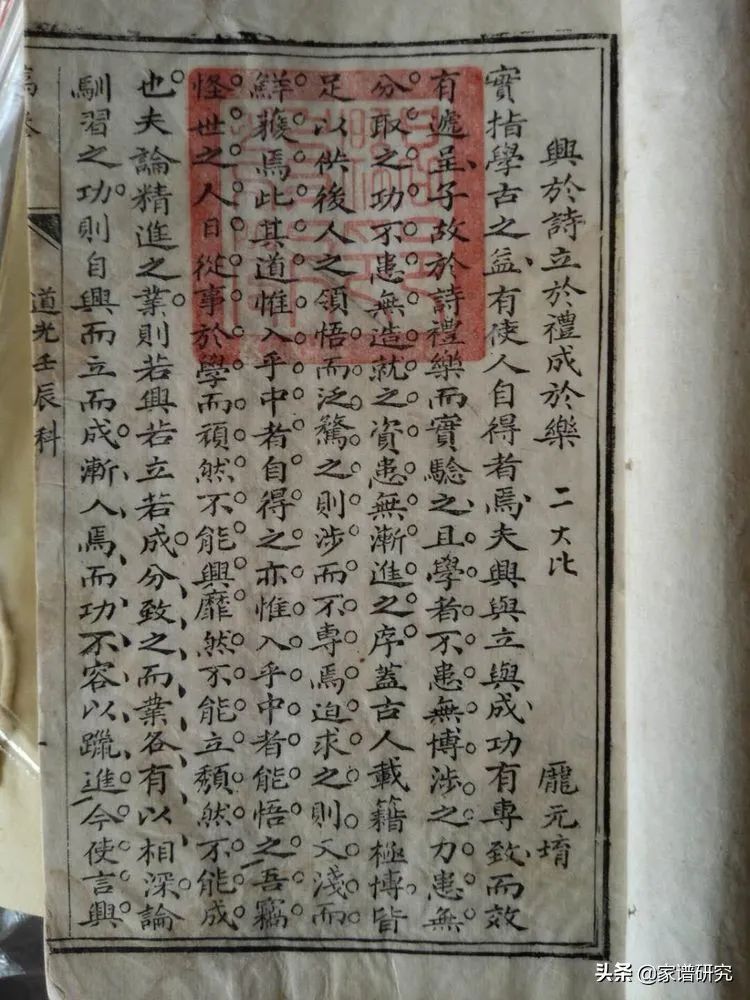 興於詩立於禮成於樂 二大比 龐元堉
實指學古之益有使人自得者焉夫興與立與成功有專致而效
有遞呈子故於詩禮樂而實驗之且學者不患無博涉之力患無
分取之功不患無造就之資患無漸進之序蓋古人載籍極博皆
足以供後人之領悟而泛騖之則涉而不專焉迫求之則又淺而
鮮獲焉此其道惟入乎中者自得之亦惟入乎中者能悟之吾竊
怪世之人日從事於學而頑然不能興靡然不能立頹然不能成
也夫論精進之業則若興若立若成分致之而業各有以相深論
馴習之功則自興而立而成漸入焉而功不容以躐進今使言興
道光壬辰科
头条 @家谱研究